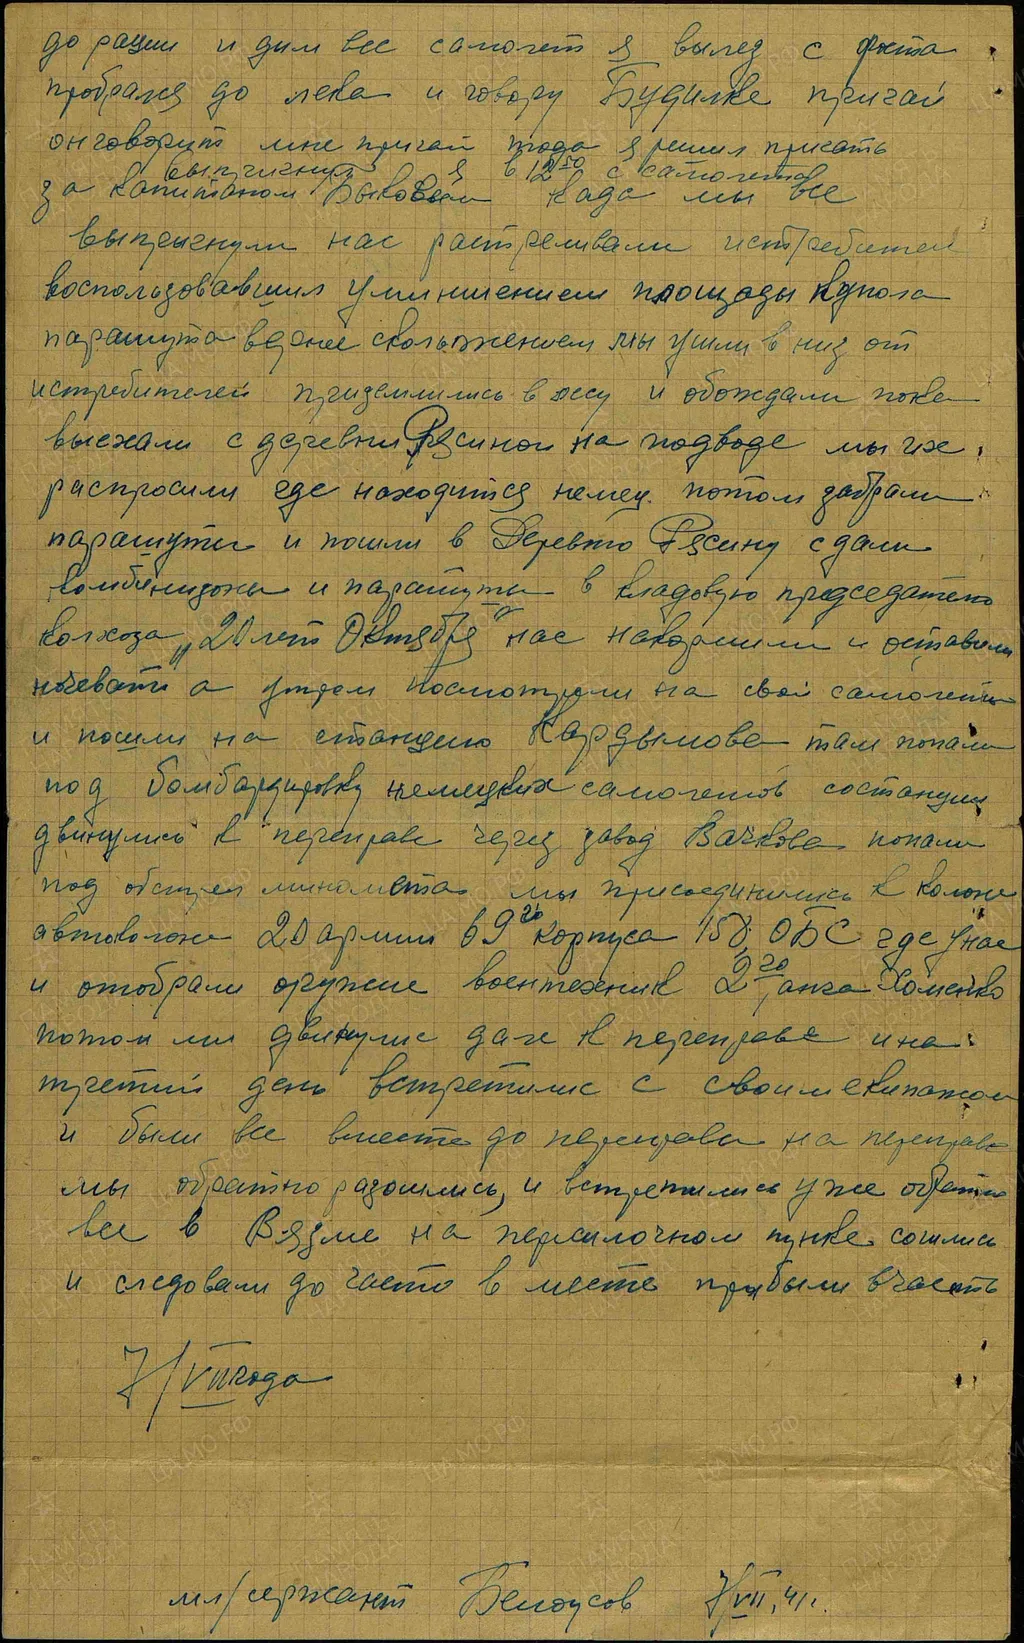 до рации и дим все самолет я вылез с фоста
пробрался до лека и говору Будилке пригай
он говорит мне пригай тода я решил пригать
выпригнул я в 12 50 с самолета
за капитаном Быковым када мы все
выпрыгнули нас растреливали истребители
воспользовавшися уминшением площады купола
парашута вдоне скольжением мы ушли в низ от
истребителей приземлились в лесу и обождали пока
выехали с деревни Рясиной на подводе мы их
распросили где находится немец. потом забрали
парашуты и пошли в Деревню Рясину сдали
комбинизоны и парашуты в кладовую председателю
колхоза „20 лет Октября" нас накормили и оставили
ночевать а утрем посмотрели на свой самолет
и пошли на станцию Кардымова там попали
под бомбардировку немецких самолетов состанции
двинулись к переправе через завод Вачкова попали
под обстрел миномета мы присоединились к колоне
автоколоне 20 армии 69го корпуса 158 ОБС где у нас
и отобрали оружие воентехник 2го ранга Хоменко
потом мы двинулис дале к переправе и на
третий день встретилис с своим екипажом
и были все вместе до переправи на переправе
мы обратно разошлись, и встретились уже обратно
все в Вязме на пересилочном пунке сошлись
и следовали до части в месте прибыли в часть
7/VII года
мл/сержант Белоусов 7/VII, 41г.